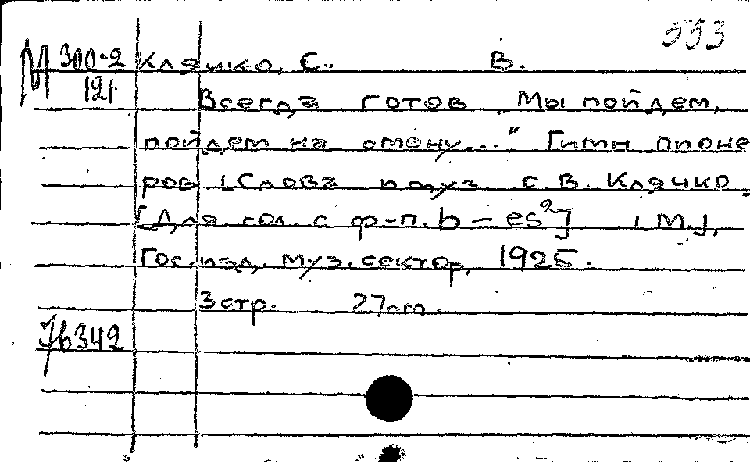 553
М 300-2 Клячко, С. В.
121 Всегда готов „Мы пойдем,
пойдем на смену..." Гимн пионе
ров [Слова и муз. С.В. Клячко.
[Для гол. с ф-п. b - es²] [М.],
Гос. изд. муз. сектор, 1925.
3 стр. 27 cm.
342